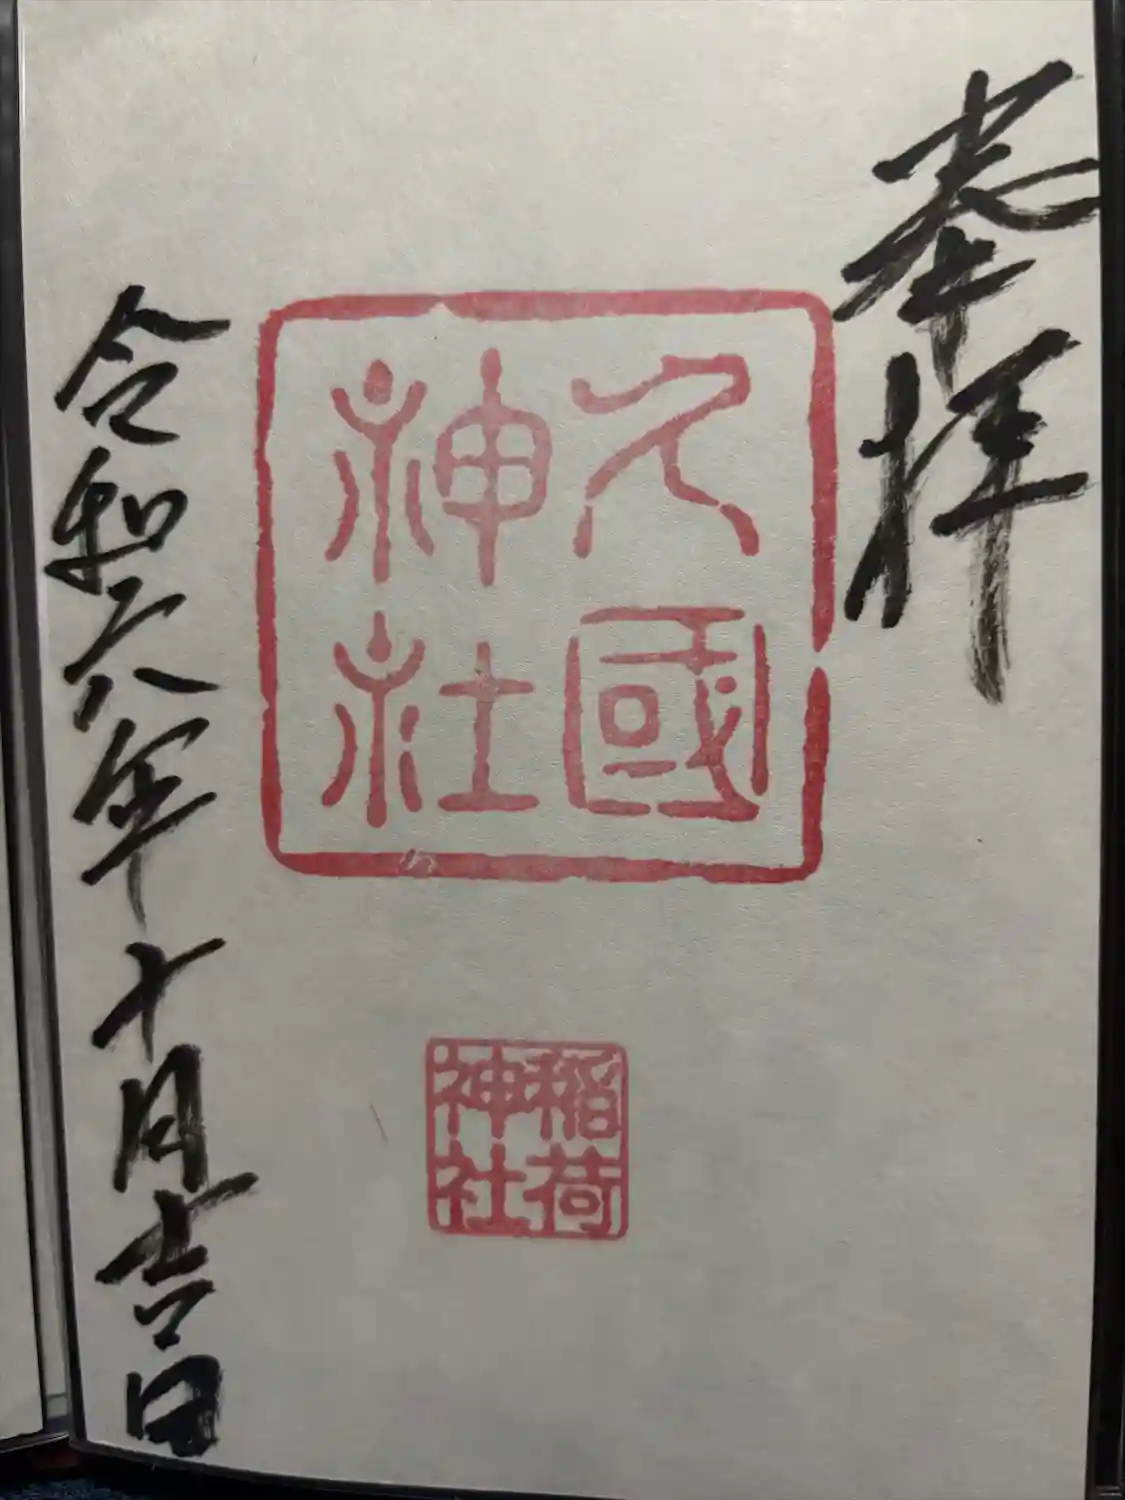 奉拝
久國
神社
稲荷
神社
令和六年十月吉日